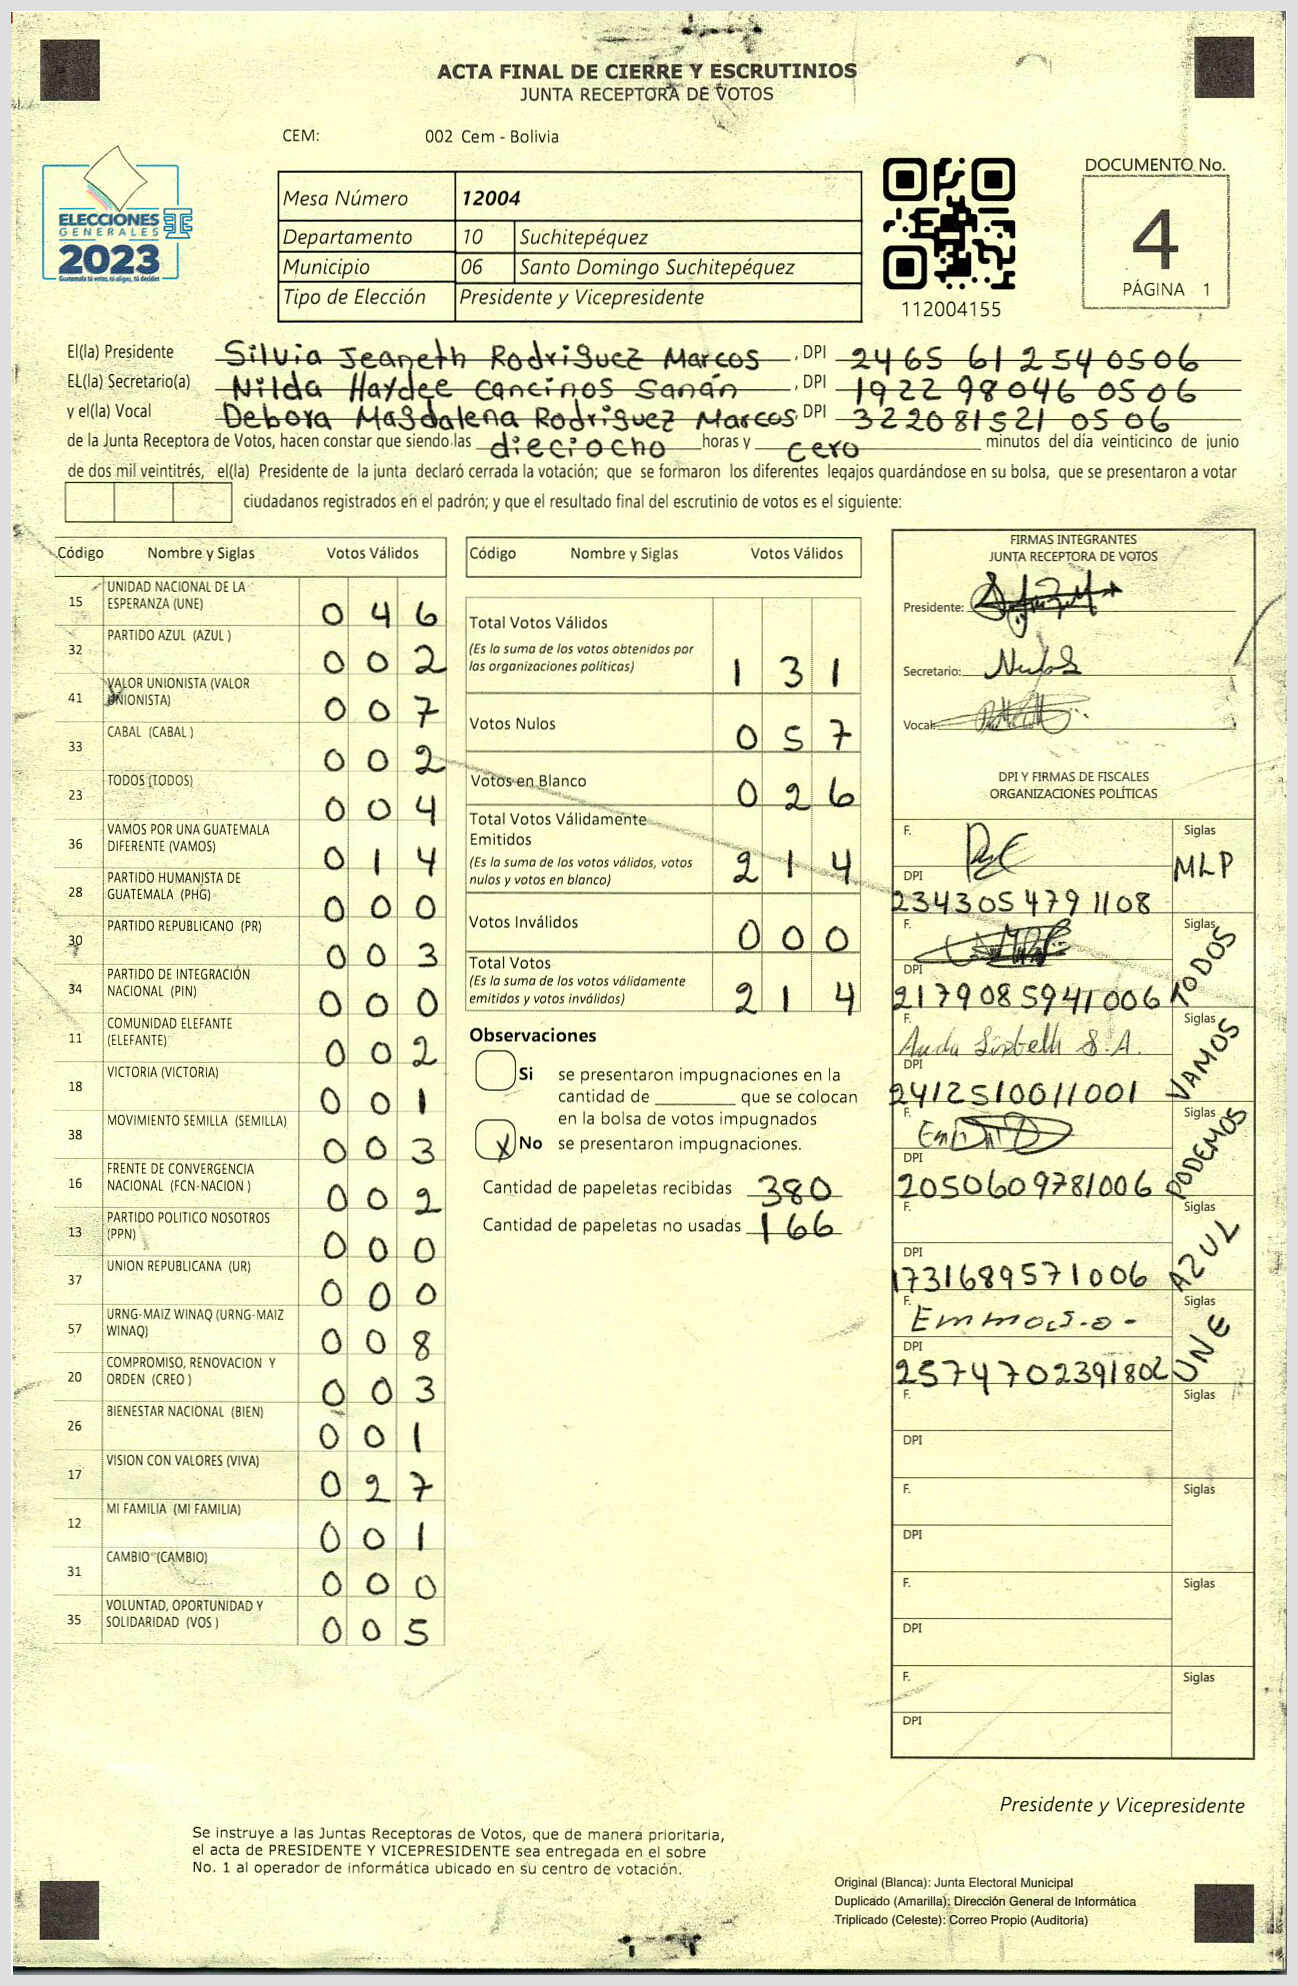 ACTA FINAL DE CIERRE Y ESCRUTINIOS
JUNTA RECEPTORA DE VOTOS
CEM: 002 Cem - Bolivia
ELECCIONES
GENERALES
2023
Guatemala tú votas, tú eliges, tú decides
Mesa Número 12004
Departamento 10 Suchitepéquez
Municipio 06 Santo Domingo Suchitepéquez
Tipo de Elección Presidente y Vicepresidente
112004155
DOCUMENTO No.
4
PÁGINA 1
El(la) Presidente Silvia Jeaneth Rodriguez Marcos, DPI 2465 61254 0506
EL(la) Secretario(a) Nilda Haydee Cancinos Sanán, DPI 1922 98046 0506
y el(la) Vocal Debora Magdalena Rodriguez Marcos, DPI 322081521 0506
de la Junta Receptora de Votos, hacen constar que siendo las dieciocho horas y cero minutos del día veinticinco de junio
de dos mil veintitrés, el(la) Presidente de la junta declaró cerrada la votación; que se formaron los diferentes legajos quardándose en su bolsa, que se presentaron a votar
ciudadanos registrados en el padrón; y que el resultado final del escrutinio de votos es el siguiente:
Código Nombre y Siglas Votos Válidos
15 UNIDAD NACIONAL DE LA ESPERANZA (UNE) 0 4 6
32 PARTIDO AZUL (AZUL ) 0 0 2
41 VALOR UNIONISTA (VALOR UNIONISTA) 0 0 7
33 CABAL (CABAL ) 0 0 2
23 TODOS (TODOS) 0 0 4
36 VAMOS POR UNA GUATEMALA DIFERENTE (VAMOS) 0 1 4
28 PARTIDO HUMANISTA DE GUATEMALA (PHG) 0 0 0
30 PARTIDO REPUBLICANO (PR) 0 0 3
34 PARTIDO DE INTEGRACIÓN NACIONAL (PIN) 0 0 0
11 COMUNIDAD ELEFANTE (ELEFANTE) 0 0 2
18 VICTORIA (VICTORIA) 0 0 1
38 MOVIMIENTO SEMILLA (SEMILLA) 0 0 3
16 FRENTE DE CONVERGENCIA NACIONAL (FCN-NACION ) 0 0 2
13 PARTIDO POLITICO NOSOTROS (PPN) 0 0 0
37 UNION REPUBLICANA (UR) 0 0 0
57 URNG-MAIZ WINAQ (URNG-MAIZ WINAQ) 0 0 8
20 COMPROMISO, RENOVACION Y ORDEN (CREO ) 0 0 3
26 BIENESTAR NACIONAL (BIEN) 0 0 1
17 VISION CON VALORES (VIVA) 0 2 7
12 MI FAMILIA (MI FAMILIA) 0 0 1
31 CAMBIO (CAMBIO) 0 0 0
35 VOLUNTAD, OPORTUNIDAD Y SOLIDARIDAD (VOS ) 0 0 5
Código Nombre y Siglas Votos Válidos
Total Votos Válidos
(Es la suma de los votos obtenidos por
las organizaciones políticas) 1 3 1
Votos Nulos 0 5 7
Votos en Blanco 0 2 6
Total Votos Válidamente
Emitidos
(Es la suma de los votos válidos, votos
nulos y votos en blanco) 2 1 4
Votos Inválidos 0 0 0
Total Votos
(Es la suma de los votos válidamente
emitidos y votos inválidos) 2 1 4
Observaciones
Si se presentaron impugnaciones en la
cantidad de ________ que se colocan
en la bolsa de votos impugnados
X No se presentaron impugnaciones.
Cantidad de papeletas recibidas 380
Cantidad de papeletas no usadas 166
FIRMAS INTEGRANTES
JUNTA RECEPTORA DE VOTOS
Presidente:
Secretario:
Vocal:
DPI Y FIRMAS DE FISCALES
ORGANIZACIONES POLÍTICAS
F. Siglas
DPI MLP
2343054791108
F. Siglas
DPI TODOS
2179085941006
F. Siglas
DPI VAMOS
2412510011001
F. Siglas
DPI PODEMOS
2050609781006
F. Siglas
DPI AZUL
1731689571006
F. Siglas
DPI UNE
2574702391802
F. Siglas
DPI
F. Siglas
DPI
F. Siglas
DPI
F. Siglas
DPI
Presidente y Vicepresidente
Se instruye a las Juntas Receptoras de Votos, que de manera prioritaria,
el acta de PRESIDENTE Y VICEPRESIDENTE sea entregada en el sobre
No. 1 al operador de informática ubicado en su centro de votación.
Original (Blanca): Junta Electoral Municipal
Duplicado (Amarilla): Dirección General de Informática
Triplicado (Celeste): Correo Propio (Auditoría)